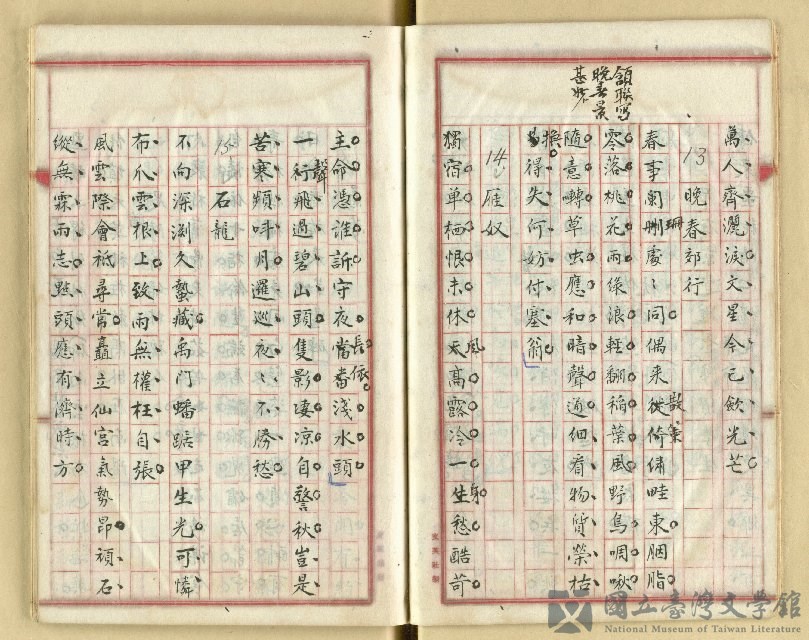 萬人齊灑淚文星今已飲光芒
13 晚春郊行
頷聯寫
晚春景
甚肖
春事闌刪處〻同偶來從倚綉畦東胭脂
珊
散策
零落桃花雨綠浪輕翻稻葉風野鳥啁啾
隨意囀草虫應和暗聲通徊看物質榮枯
換
得失何妨付塞翁
14 雁奴
獨宿单栖恨未休天高露冷一生愁酷苛
風
身
主命憑誰訴守夜當番淺水頭
長依
一行飛過碧山頭隻影凄凉自警秋豈是
聲
苦寒頻呌月邏巡夜〻不勝愁
15 石龍
不向深渊久蟄藏禹門蟠踞甲生光可憐
布爪雲根上致雨無權枉自張
風雲際會祗尋常矗立仙宮氣勢昂頑石
縱無霖雨志點頭應有濟時方
國立臺灣文學館
National Museum of Taiwan Literature